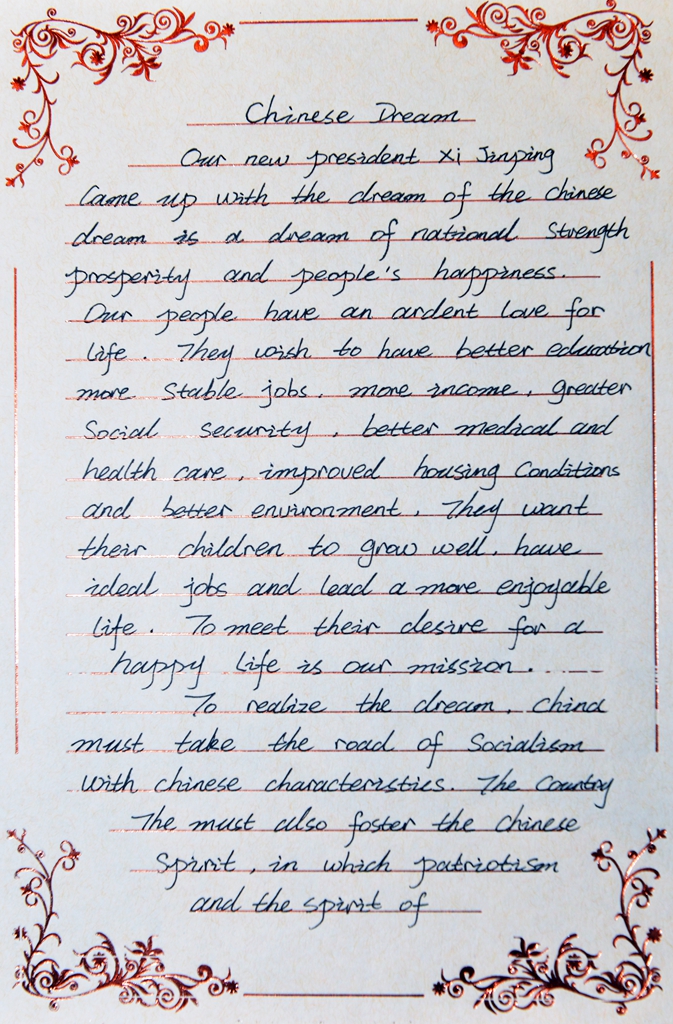 Chinese Dream
Our new president Xi Jinping
Came up with the dream of the Chinese
dream is a dream of national Strength
prosperity and people's happiness.
Our people have an ardent love for
life. They wish to have better education
more Stable jobs, more income, greater
Social security, better medical and
health care, improved housing Conditions
and better environment. They want
their children to grow well, have
ideal jobs and lead a more enjoyable
life. To meet their desire for a
happy life is our mission.
To realize the dream, China
must take the road of Socialism
with chinese characteristics. The Country
The must also foster the Chinese
Spirit, in which patriotism
and the spirit of